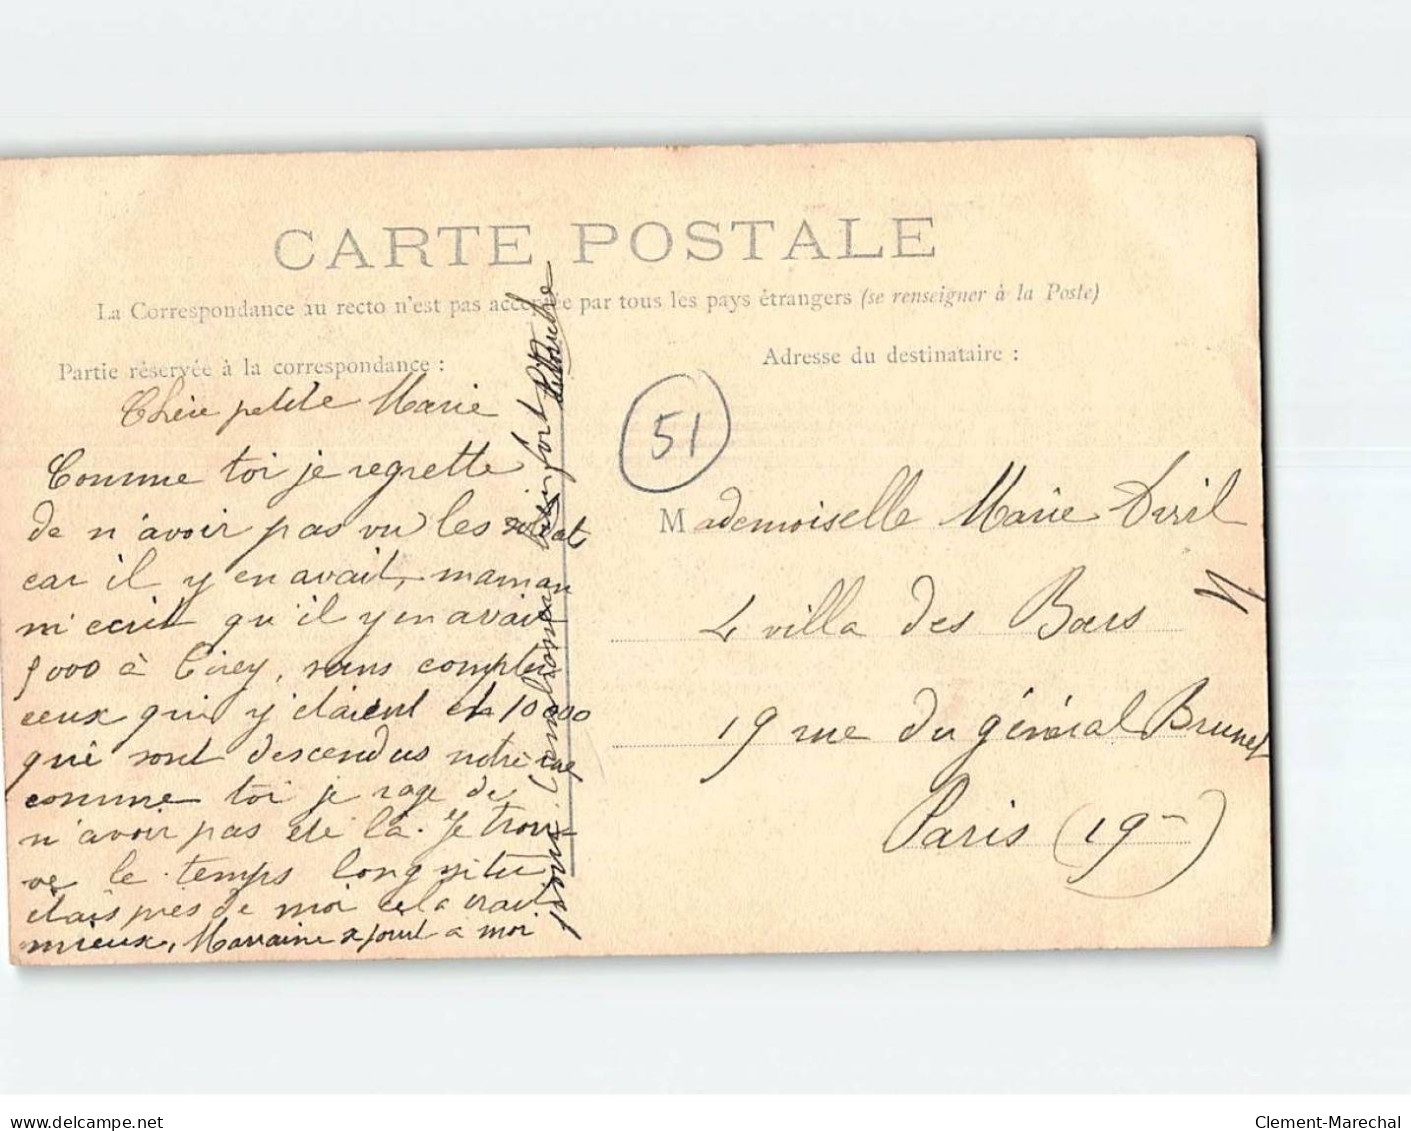 CARTE POSTALE
La Correspondance au recto n'est pas acceptée par tous les pays étrangers (se renseigner à la Poste)
Partie réservée à la correspondance :
Chère petite Marie
Comme toi je regrette
de n'avoir pas vu les soldat
car il y en avait, maman
m'écrit qu'il y en avait
5000 à Cirey, sans compter
ceux qui y étaient et 10000
qui sont descendus notre rue
comme toi je rage de
n'avoir pas été là. Je trou-
ve le temps long si tu
étais près de moi cela irait
mieux, Marraine se joint a moi
pour t'embrasser bien fort
Adresse du destinataire :
51
Mademoiselle Marie
4 villa des Boers
19 rue du général Brunet
Paris (19
www.delcampe.net
Clement-Marechal